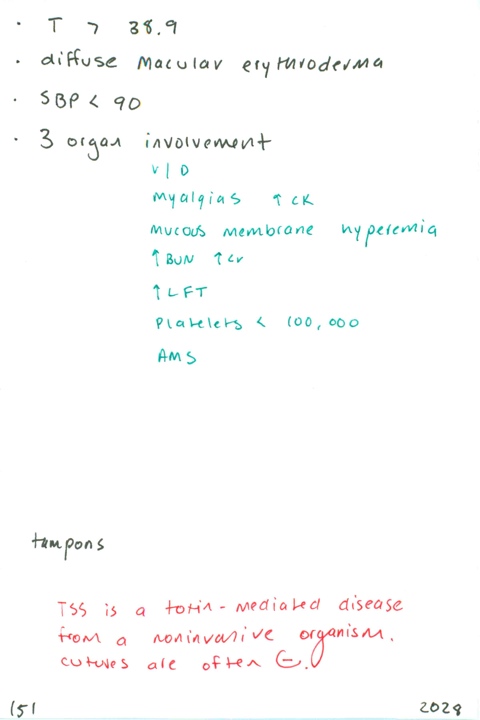 · T > 38.9
· diffuse macular erythroderma
· SBP < 90
· 3 organ involvement
V/D
Myalgias ↑ CK
Mucous membrane hyperemia
↑ BUN ↑ Cr
↑ LFT
Platelets < 100,000
AMS
tampons
TSS is a toxin-mediated disease
from a noninvasive organism.
cutures are often ⊖.
151 2028